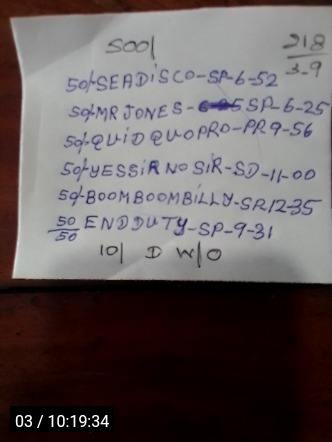 500/
218
3-9
50/-SEADiSCO-SP-6-52
50/-MR JONES-6-25 SP-6-25
50/-QUiDQUOPRO-PR9-56
50/-YESSiRNOSiR-SD-11-00
50/-BOOMBOOMBiLLY-SR12-35
50/50 ENDDUTY-SP-9-31
10/ D W/O
03 / 10:19:34